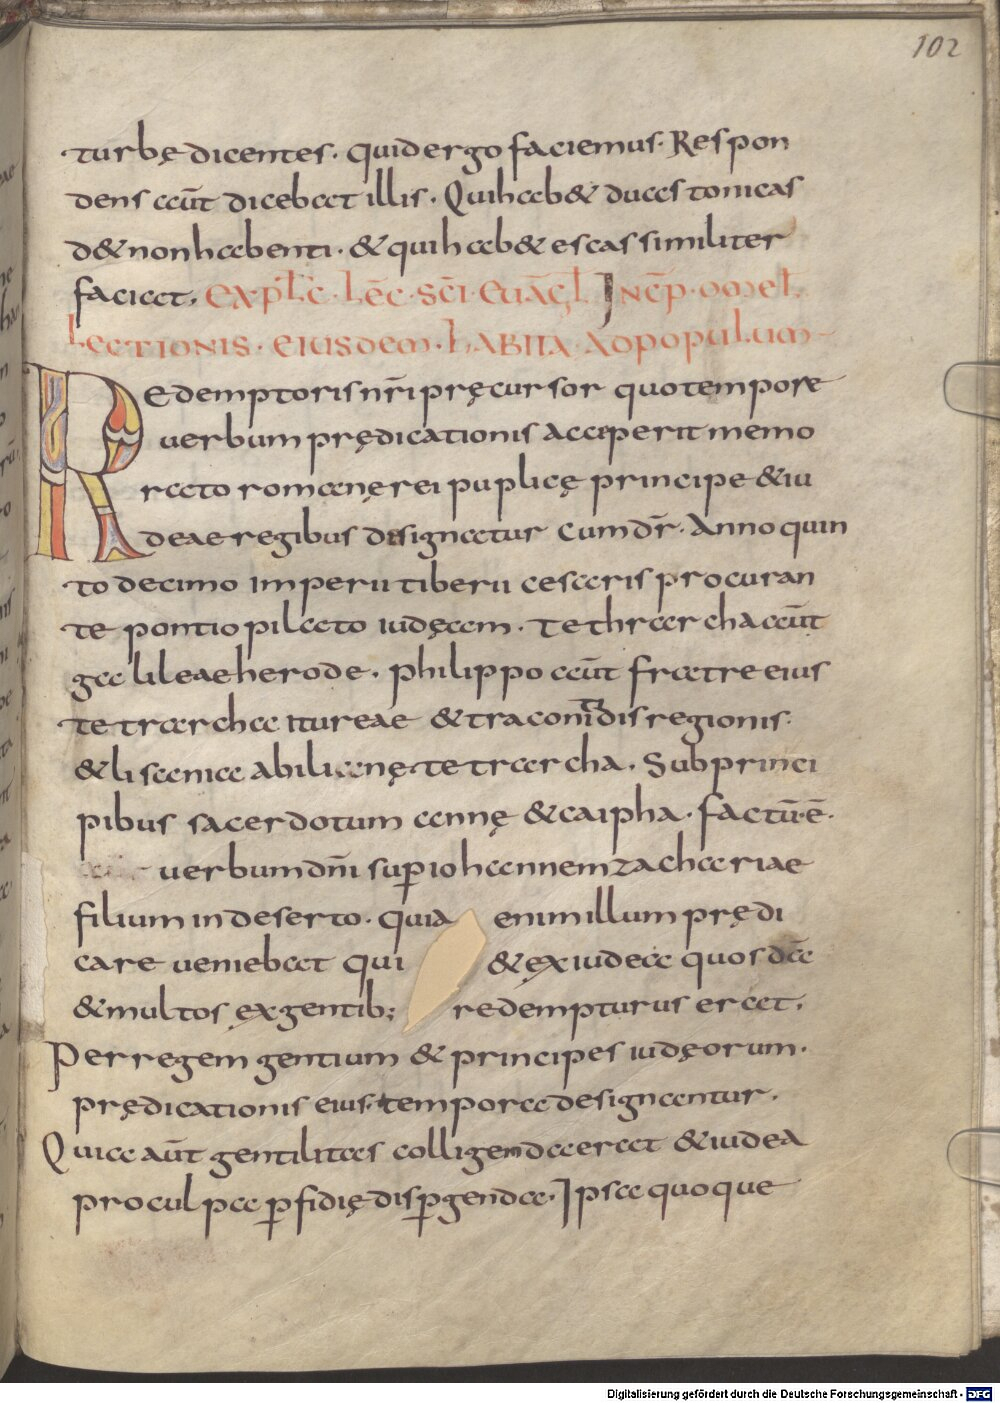 102
turbę dicentes. quid ergo faciemus. Respon
dens aūt dicebat illis. Qui hab& duas tonicas
d& non habenti. & qui hab& escas similiter
faciat. expl̅c. lēc. sc̄i. euāgl. Incp̄. omel.
lectionis. eiusdem. habita ad populum
Redemptoris nr̄i pręcursor quo tempore
uerbum prędicationis acceperit memo
rato romanę rei puplicę principe & iu
deae regibus designatur cum dr̄. Anno quin
to decimo imperii tiberii cesaris procuran
te pontio pilato iudęam. tethrarcha aūt
galileae herode. philippo aūt fratre eius
tetrarcha itureae & traconitidis regionis.
& lisania abilianę tetrarcha. Sub princi
pibus sacerdotum annę & caipha. factū ē.
uerbum dn̄i sup̄ iohannem zachariae
filium in deserto. quia enim illum prędi
care ueniebat qui & ex iudea quosdā
& multos ex gentib; redempturus erat.
Per regem gentium & principes iudęorum.
prędicationis eius tempora designantur.
Quia aūt gentilitas colligenda erat & iudea
pro culpa p̄fidię disp̄genda. Ipsa quoque
Digitalisierung gefördert durch die Deutsche Forschungsgemeinschaft - DFG